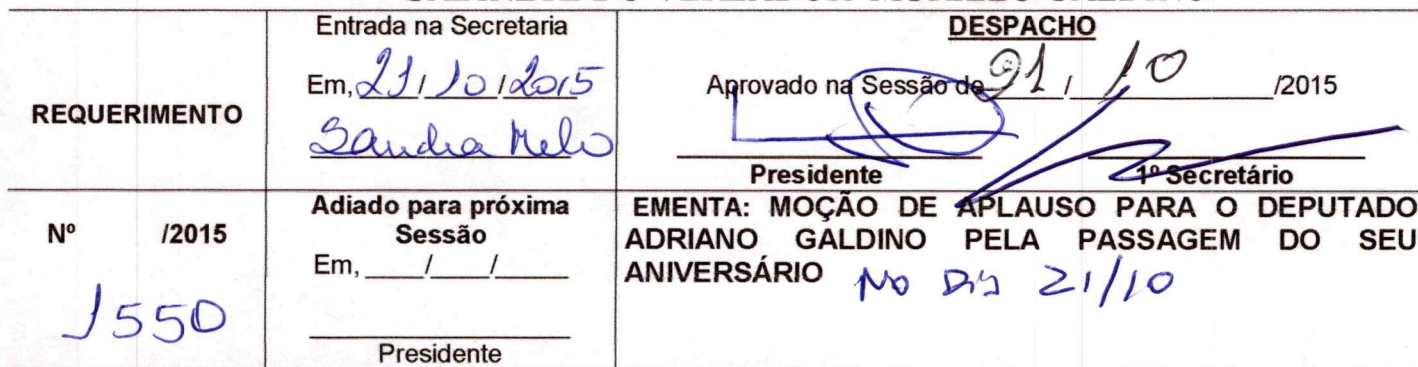 REQUERIMENTO
Entrada na Secretaria
Em, 21/10/2015
Sandra Melo
DESPACHO
Aprovado na Sessão de 21/10/2015
Presidente
1º Secretário
Nº /2015
1550
Adiado para próxima
Sessão
Em, ____/____/____
Presidente
EMENTA: MOÇÃO DE APLAUSO PARA O DEPUTADO
ADRIANO GALDINO PELA PASSAGEM DO SEU
ANIVERSÁRIO No Dia 21/10